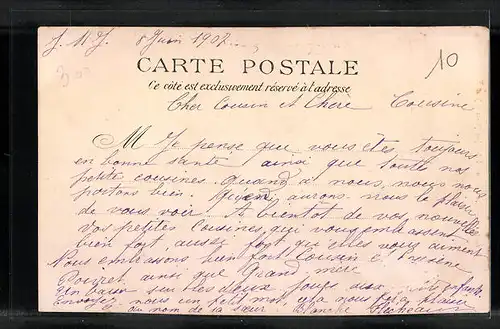 J. M. J. 8 Juin 1902
10
CARTE POSTALE
Ce côté est exclusivement réservé à l'adresse
Cher Cousin et Chère Cousine
M Je pense que vous êtes toujours
en bonne santé ainsi que toutes nos
petites cousines. Quand à nous, nous nous
portons bien. Quand aurons nous le plaisir
de vous voir. A bientôt de vos nouvelles
Vos petites Cousines, qui vous embrassent
bien fort, aussi fort qu'elles vous aiment
Nous embrassons bien fort Cousin
ainsi que Grand mère
Un baiser sur les deux joues aux petits enfants.
Envoyez nous un petit mot cela nous fera plaisir
au nom de ma sœur Blanche